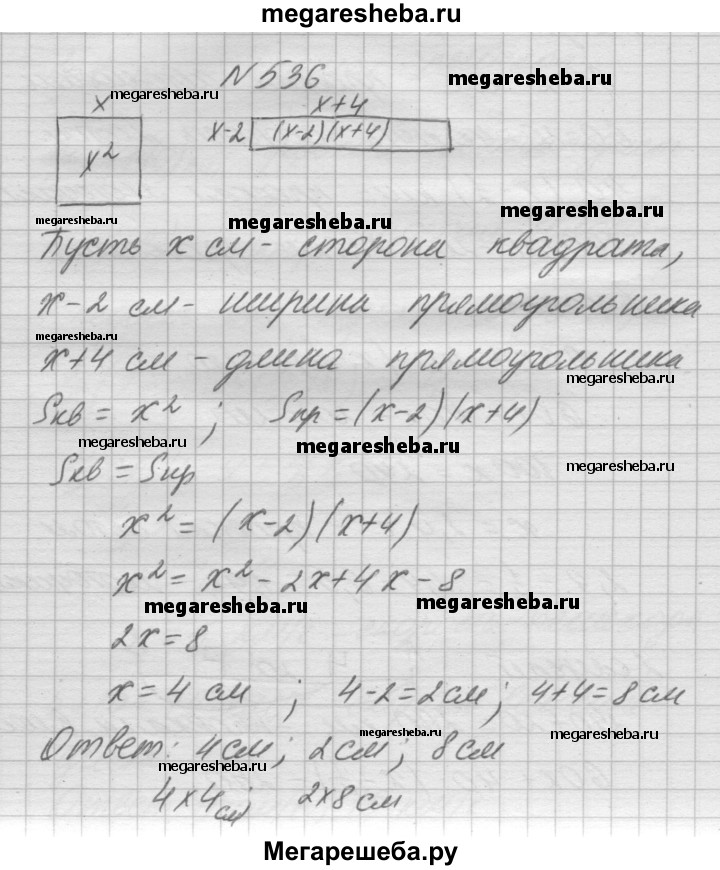 megaresheba.ru
N 536
megaresheba.ru
megaresheba.ru
x
x+4
x-2 (x-2)(x+4)
x²
megaresheba.ru
megaresheba.ru
megaresheba.ru
Пусть x см - сторона квадрата,
x-2 см - ширина прямоугольника
megaresheba.ru
x+4 см - длина прямоугольника
megaresheba.ru
Sкв = x² ; Sпр = (x-2)(x+4)
megaresheba.ru
megaresheba.ru
megaresheba.ru
Sкв = Sпр
x² = (x-2)(x+4)
x² = x² - 2x + 4x - 8
megaresheba.ru
megaresheba.ru
2x = 8
x = 4 см ; 4-2=2см; 4+4=8см
megaresheba.ru
megaresheba.ru
Ответ: 4см; 2см; 8см
megaresheba.ru
4x4 см; 2x8 см
Мегарешеба.ру